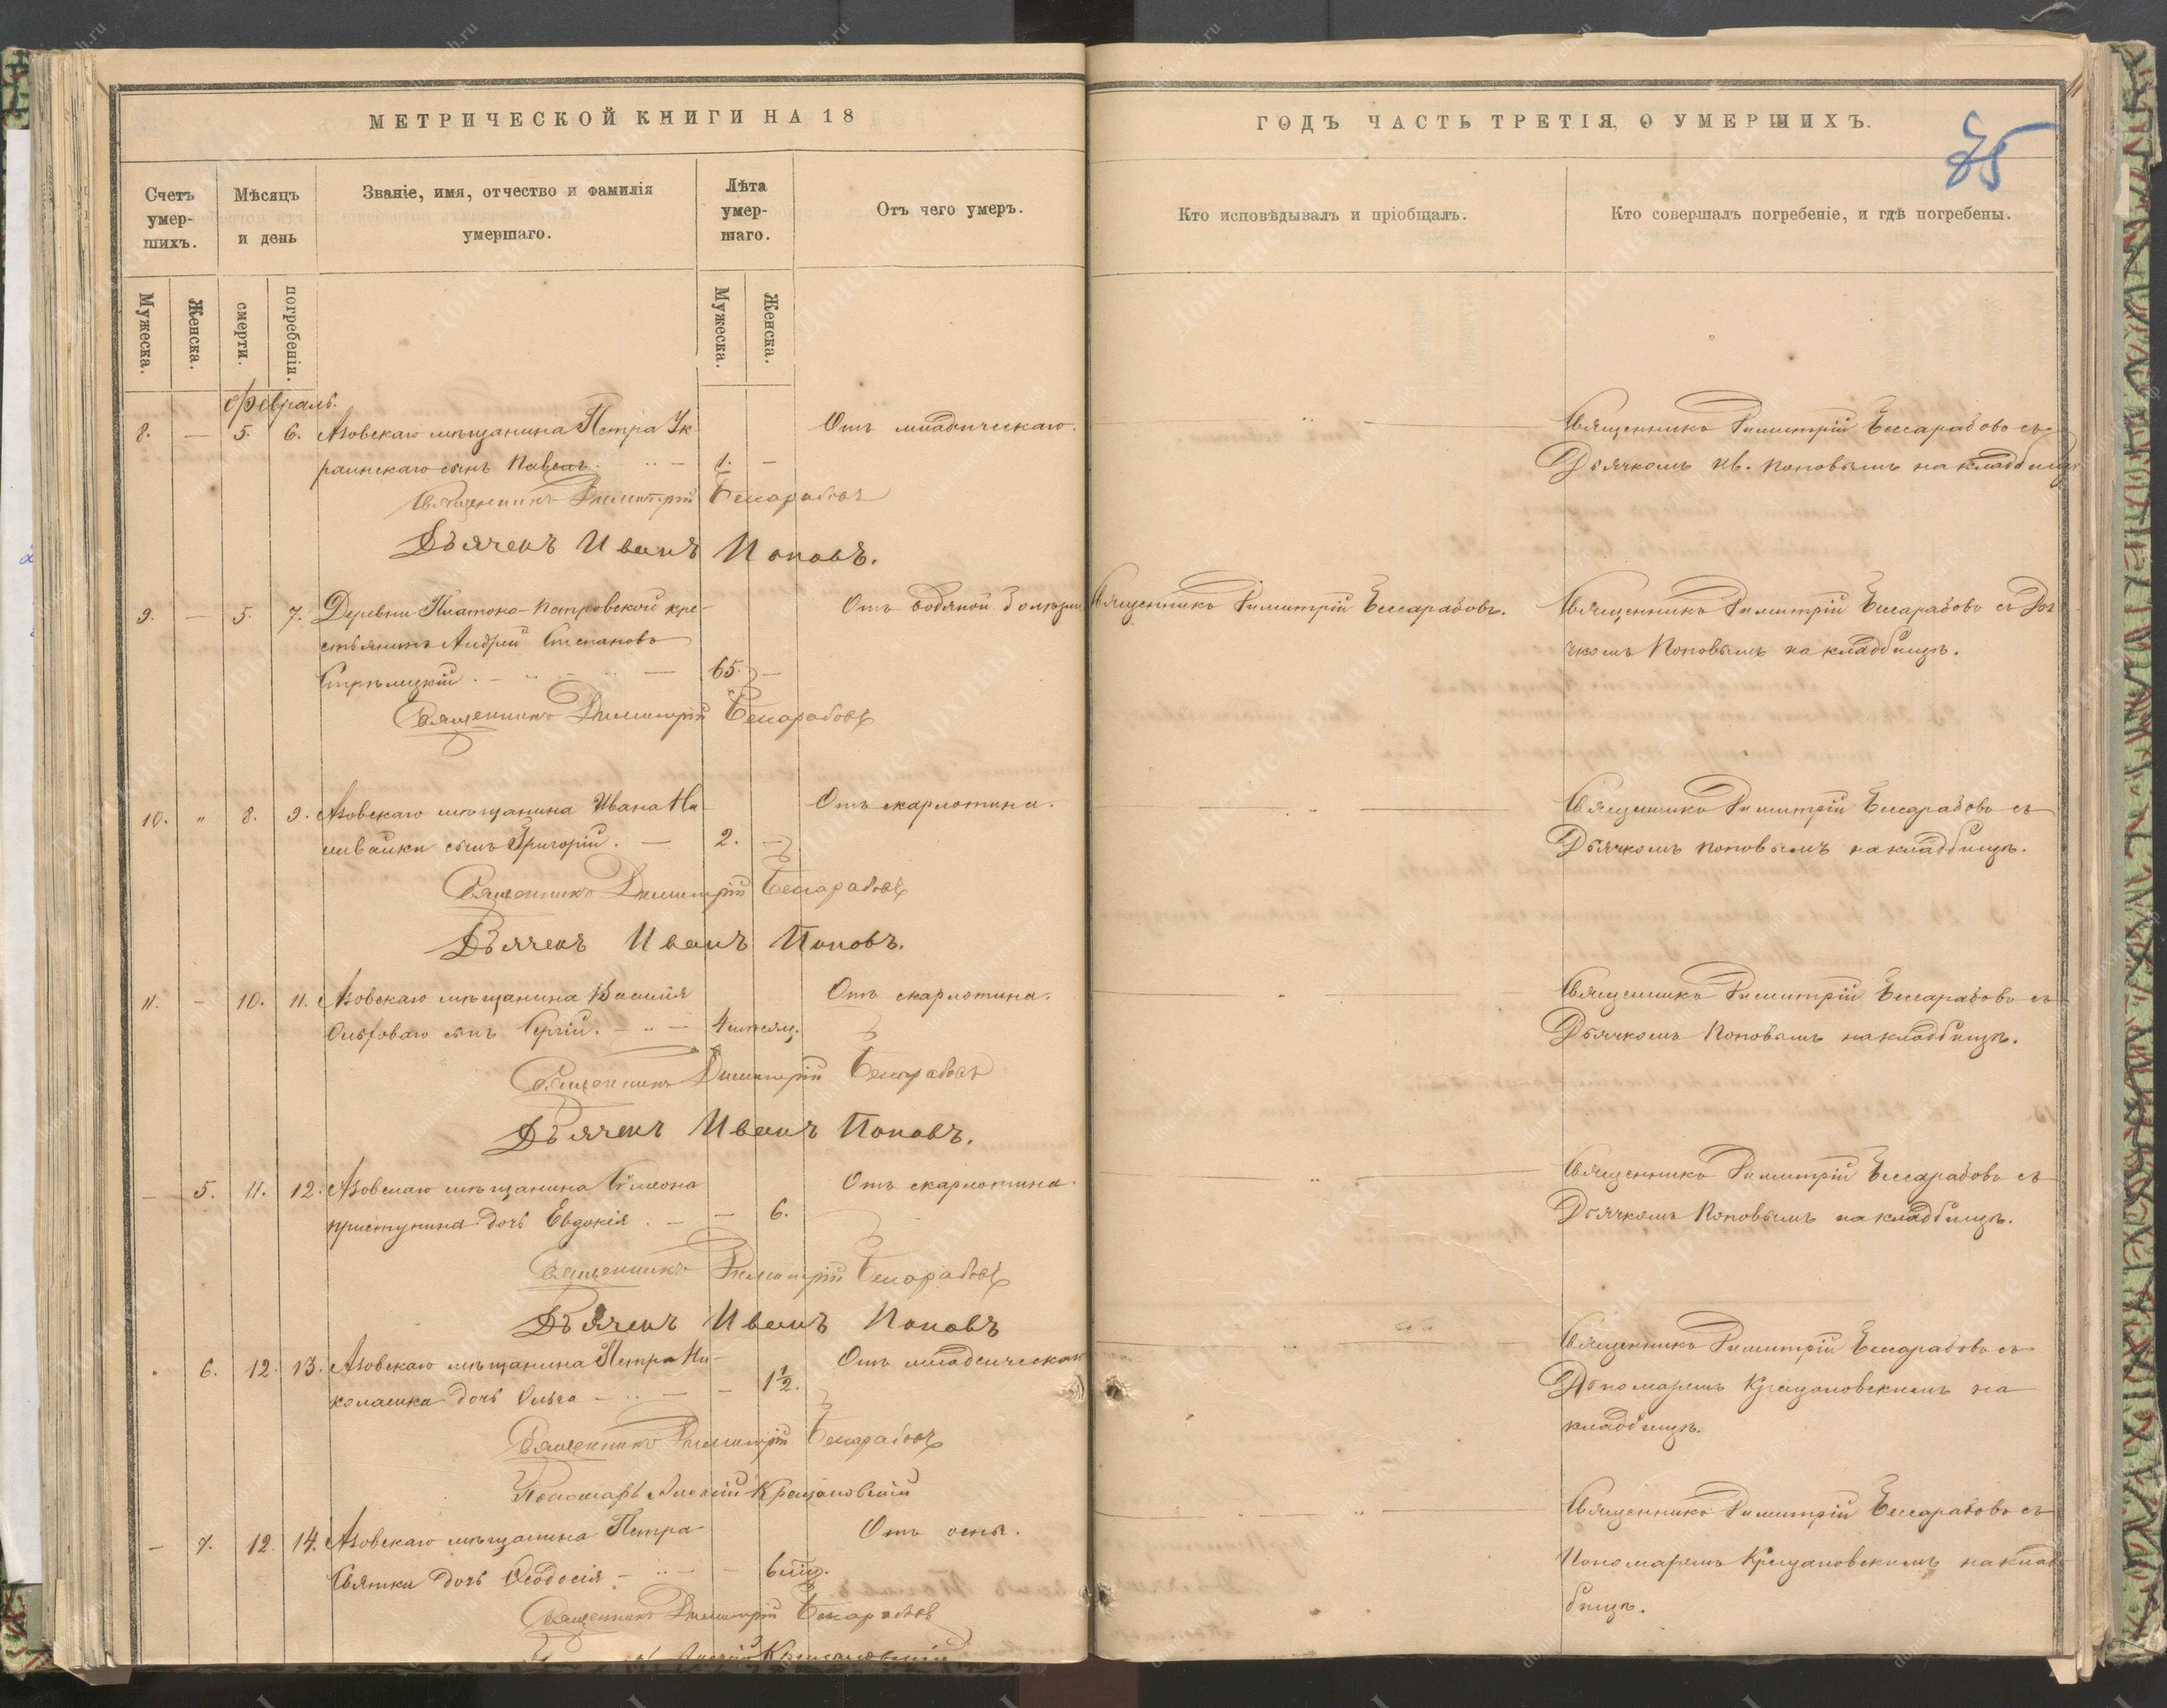 МЕТРИЧЕСКОЙ КНИГИ НА 18
Счетъ умер-
шихъ.
Мѣсяцъ
и день
Званіе, имя, отчество и фамилія
умершаго.
Лѣта
умер-
шаго.
Отъ чего умеръ.
Мужеска.
Женска.
смерти.
погребенія.
Мужеска.
Женска.
Февраль.
8. — 5. 6. Азовскаго мѣщанина Петра Ук- Отъ младенческаго.
раинскаго сынъ Павелъ. 1. —
Священникъ Димитрій Бессарабовъ
Дьячекъ Иванъ Поповъ.
9. — 5. 7. Деревни Платоно-Петровской кре- Отъ водяной болѣзни
стьянинъ Андрей Степановъ
Стрѣлецкій. 65. —
Священникъ Димитрій Бессарабовъ
10. „ 8. 9. Азовскаго мѣщанина Ивана На- Отъ скарлотина.
ливайки сынъ Григорій. — 2. —
Священникъ Димитрій Бессарабовъ
Дьячекъ Иванъ Поповъ.
11. — 10. 11. Азовскаго мѣщанина Василія Отъ скарлотина.
сынъ Сергій. 4 мѣсяц.
Священникъ Димитрій Бессарабовъ
Дьячекъ Иванъ Поповъ.
— 5. 11. 12. Азовскаго мѣщанина Симеона Отъ скарлотина.
Приступина дочь Евдокія. — — 6.
Священникъ Димитрій Бессарабовъ
Дьячекъ Иванъ Поповъ
„ 6. 12. 13. Азовскаго мѣщанина Петра Ни- Отъ младенческаго
колаенка дочь Ольга — — 1½.
Священникъ Димитрій Бессарабовъ
Пономарь Алексій Крещановскій
— 7. 12. 14. Азовскаго мѣщанина Петра Отъ оспы.
Святки дочь Ѳеодосія — — 6 мѣс.
Священникъ Димитрій Бессарабовъ
Алексій Крещановскій
ГОДЪ ЧАСТЬ ТРЕТІЯ, О УМЕРШИХЪ.
75
Кто исповѣдывалъ и пріобщалъ.
Кто совершалъ погребеніе, и гдѣ погребены.
Священникъ Димитрій Бессарабовъ съ
Дьячкомъ Ив. Поповымъ на кладбищѣ
Священникъ Димитрій Бессарабовъ. Священникъ Димитрій Бессарабовъ съ Дья-
чкомъ Поповымъ на кладбищѣ.
Священникъ Димитрій Бессарабовъ съ
Дьячкомъ Поповымъ на кладбищѣ.
Священникъ Димитрій Бессарабовъ съ
Дьячкомъ Поповымъ на кладбищѣ.
Священникъ Димитрій Бессарабовъ съ
Дьячкомъ Поповымъ на кладбищѣ.
Священникъ Димитрій Бессарабовъ съ
Пономаремъ Крещановскимъ на
кладбищѣ.
Священникъ Димитрій Бессарабовъ съ
Пономаремъ Крещановскимъ на клад-
бищѣ.